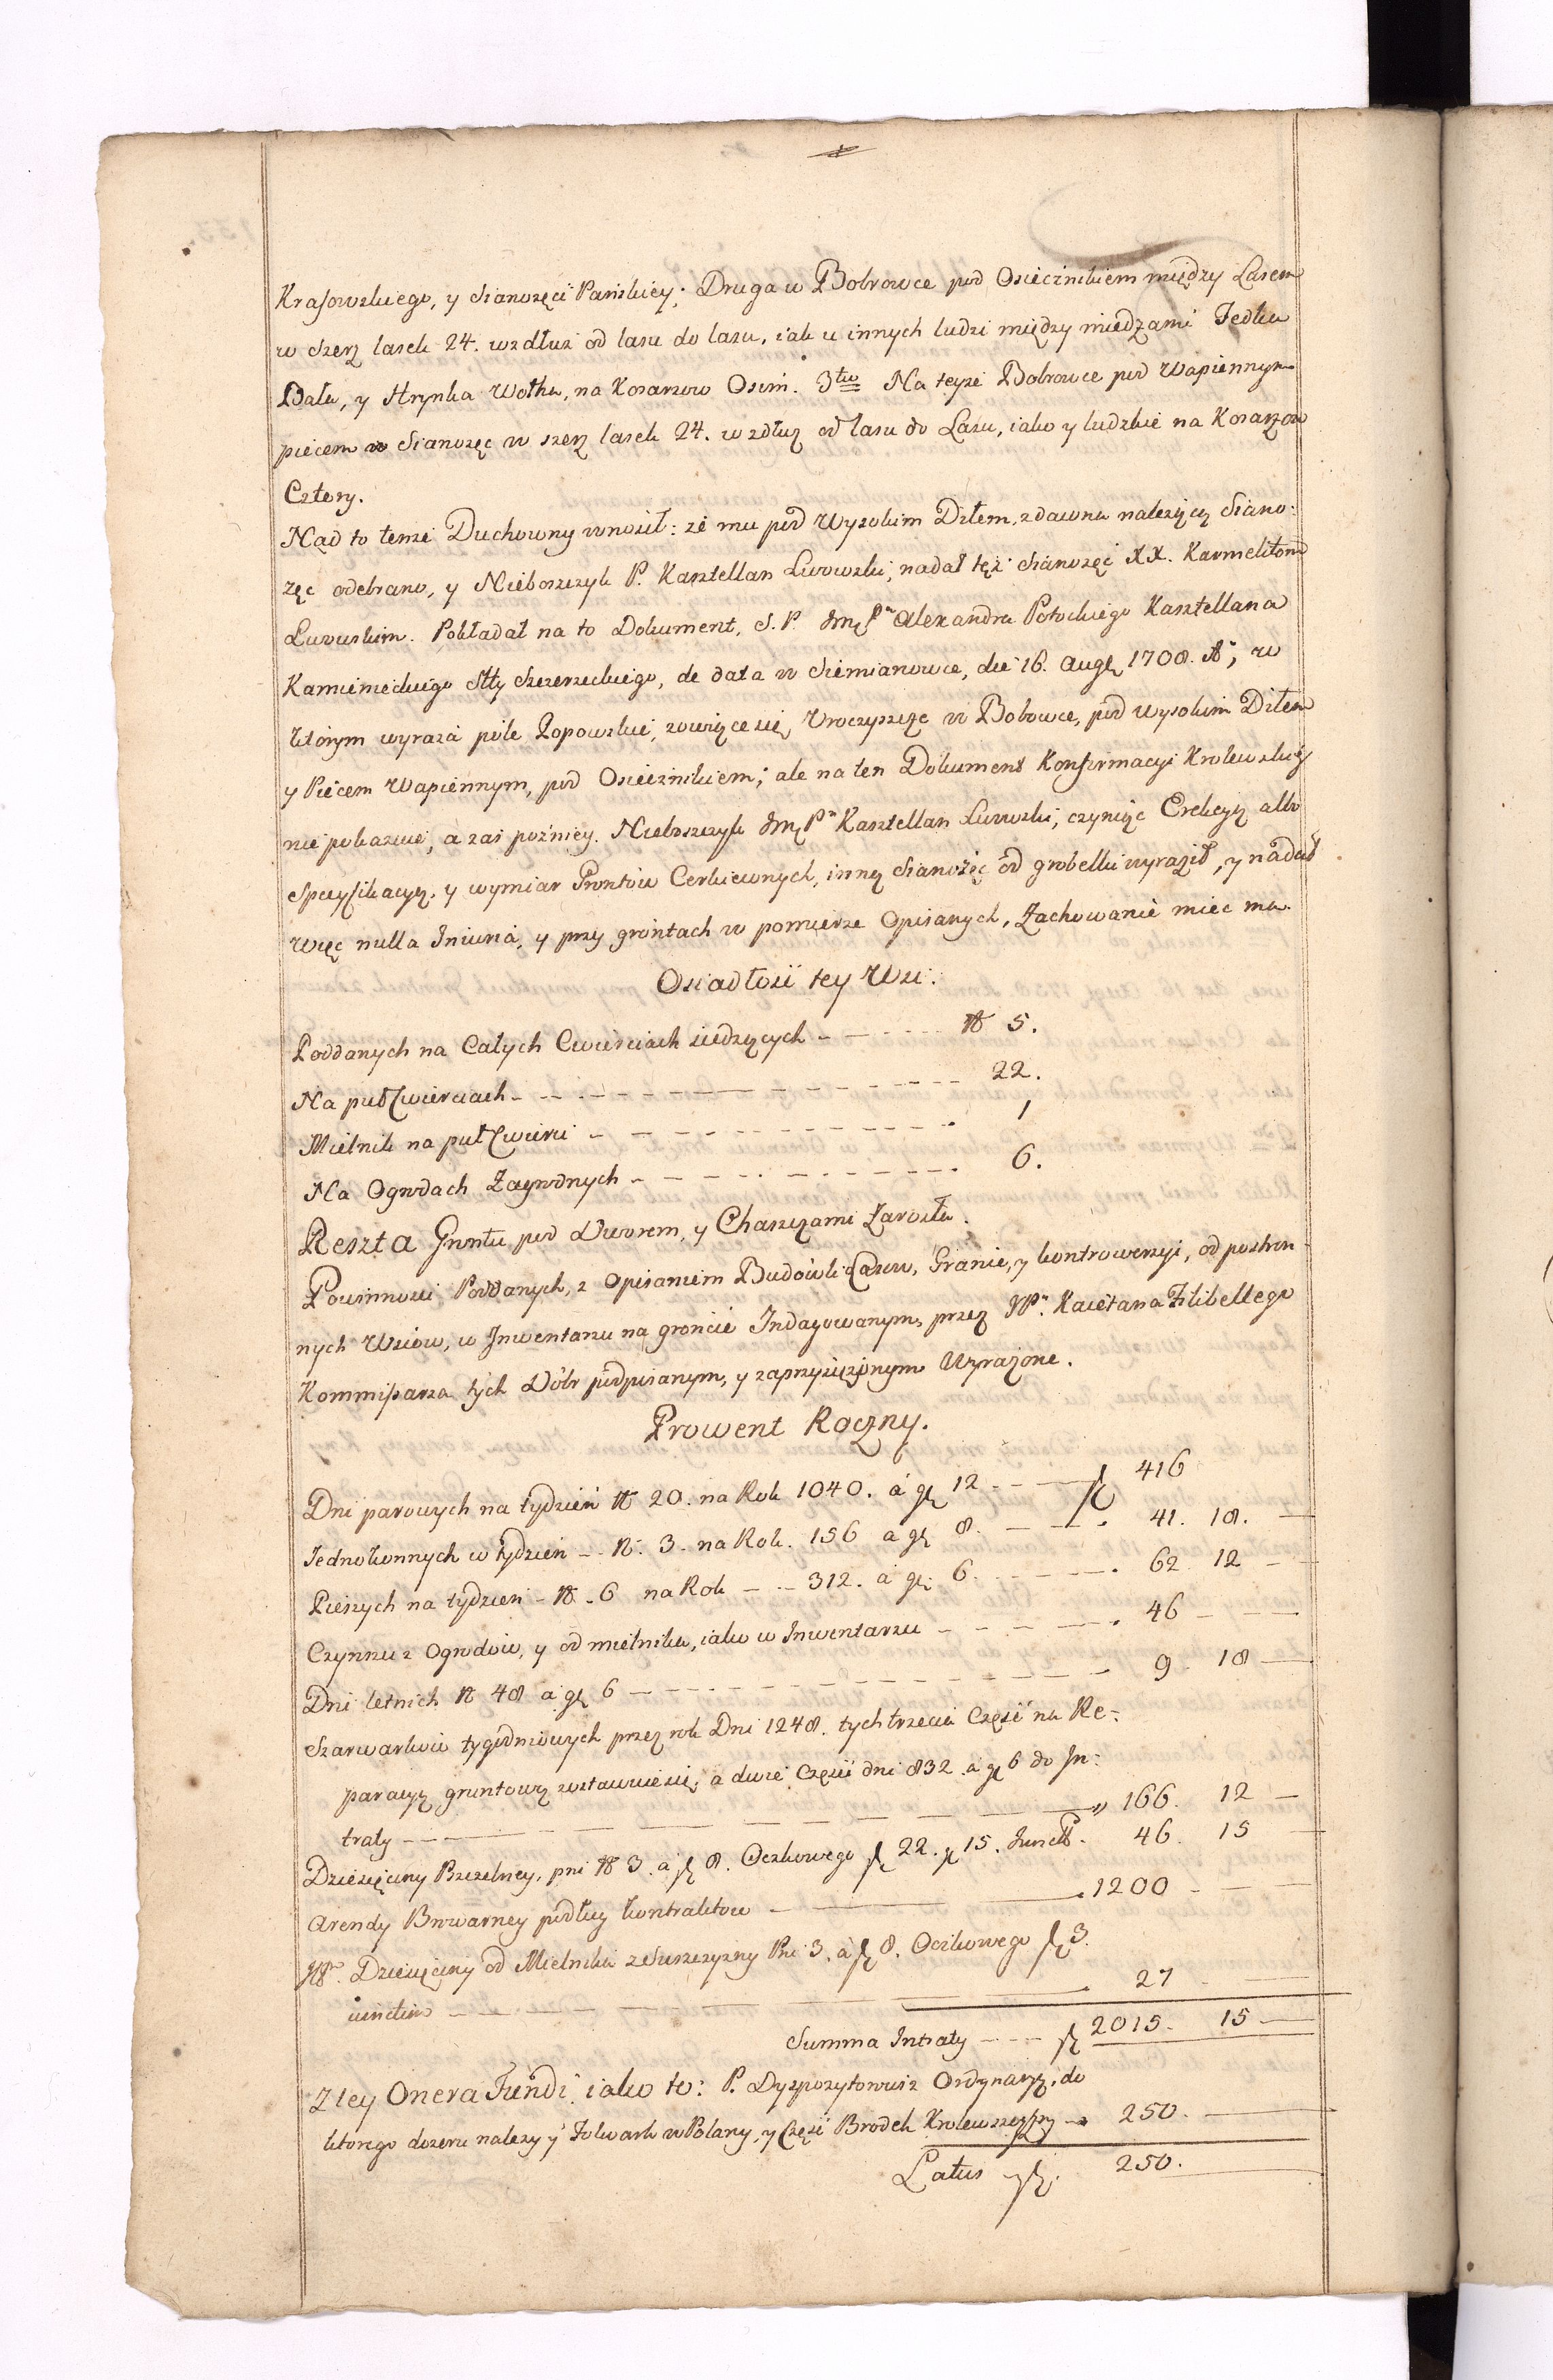 Krasowskiego, y Sianozęci Pańskiey; Druga w Bobrowce pod Osiecznikiem między Lasem
w szerz lasek 24. wzdłuż od lasu do lasu, iak u innych ludzi między miedzami Fedka
Bału, y Hrynka Wołka, na Kosarzow Osim. 3tio Na teyże Bobrowce pod Wapiennym
piecem Sianozęc w szerz lasek 24. wzdłuz od lasu do Lasu, iako y ludzkie na Kosarzow
Cztery.
Nad to tenze Duchowny wnosił: ze mu pod Wysokim Diłem, zdawna nalezącą Siano:
zęc odebrano, y Nieboszczyk P. Kasztellan Lwowski, nadał też Sianozęć XX. Karmelitom
Lwowskim. Pokładał na to Dokument, S.P. Jmę Pa Alexandra Potockiego Kasztellana
Kamienieckiego Stty Szczerzeckiego, de data w Siemianowce, die 16. Augę 1708. A°, w
którym wyraża pole Popowskie, zowiące się Uroczyszcze w Bobowce, pod wysokim Diłem
y Piecem Wapiennym, pod Osiecznikiem; ale na ten Dokument Konfirmacyi Krolewskiey
nie pokazuie, a zaś poźniey. Nieboszczyk Jmę Pn Kasztellan Lwowski, czyniąc Erekcyą albo
Specyfikacyą, y wymiar Grontow Cerkiewnych, inną Sianożęć od grobelki wyraził, y nadał
więc nulla Iniuria, y przy grontach w pomierze Opisanych, Zachowanie miec ma.
Osiadłość tey Wsi.
Poddanych na Całych Cwierciach siedzących - - - - N 5.
Na puł Cwierciach - - - - - - - - 22.
Mielnik na puł Cwierci - - - - - - - 1
Na Ogrodach Zagrodnych - - - - - - - 6.
Reszta Grontu pod Dworem, y Chaszczami Zarosła.
Powinnosci Poddanych, z Opisaniem Budowli Lasow, Granic, y kontrowersyi, od postron-
nych Wsiow, w Inwentarzu na groncie Indagowanym, przez JPn. Kaietana Filibellego
Kommissarza tych Dobr podpisanym, y zaprzysiężonym Wyrażone.
Prowent Roczny.
Dni parowych na tydzień N 20. na Rok 1040. á gę 12 - - - fę 416
Jednokonnych w tydzien - - N. 3. na Rok. 156 a gę 8. - - - 41. 18. -
Pieszych na tydzien - N. 6 na Rok - - 312. á gę 6. - - - 62 12 - -
Czynszu z Ogrodow, y od mielnika, iako w Inwentarzu - - - - - 46 - - -
Dni letnich N 48 a gę 6 - - - - - - - - 9. 18 -
Szarwarkow tygodniowych przez rok Dni 1248. tych trzecia Część na Re-
paracyą gruntową zostawuie się, a dwie Części dni 832 á gę 6 do In:
traty - - - - - - - - 166. 12 -
Dziesięciny Pszczelney, pni N 3. á fę 8. Oczkowego fę 22. gę 15. Junctt. 46. 15 -
Arendy Browarney podług kontraktow - - - 1200 - - -
Dziesięciny od Mielnika z Suszczyzny Pni 3. á fę 8. Oczkowego fę 3.
iunctim - - - - - - - 27 - -
Summa Intraty - - - fę 2015. 15 -
Z tey Onera Fundi, iako to: P. Dyspozytorowi z Ordynaryą, do
ktorego dozoru nalezy y Folwark w Polany, y Część Brodek Krolewszczyzny - 250. -
Latus - fę. 250.